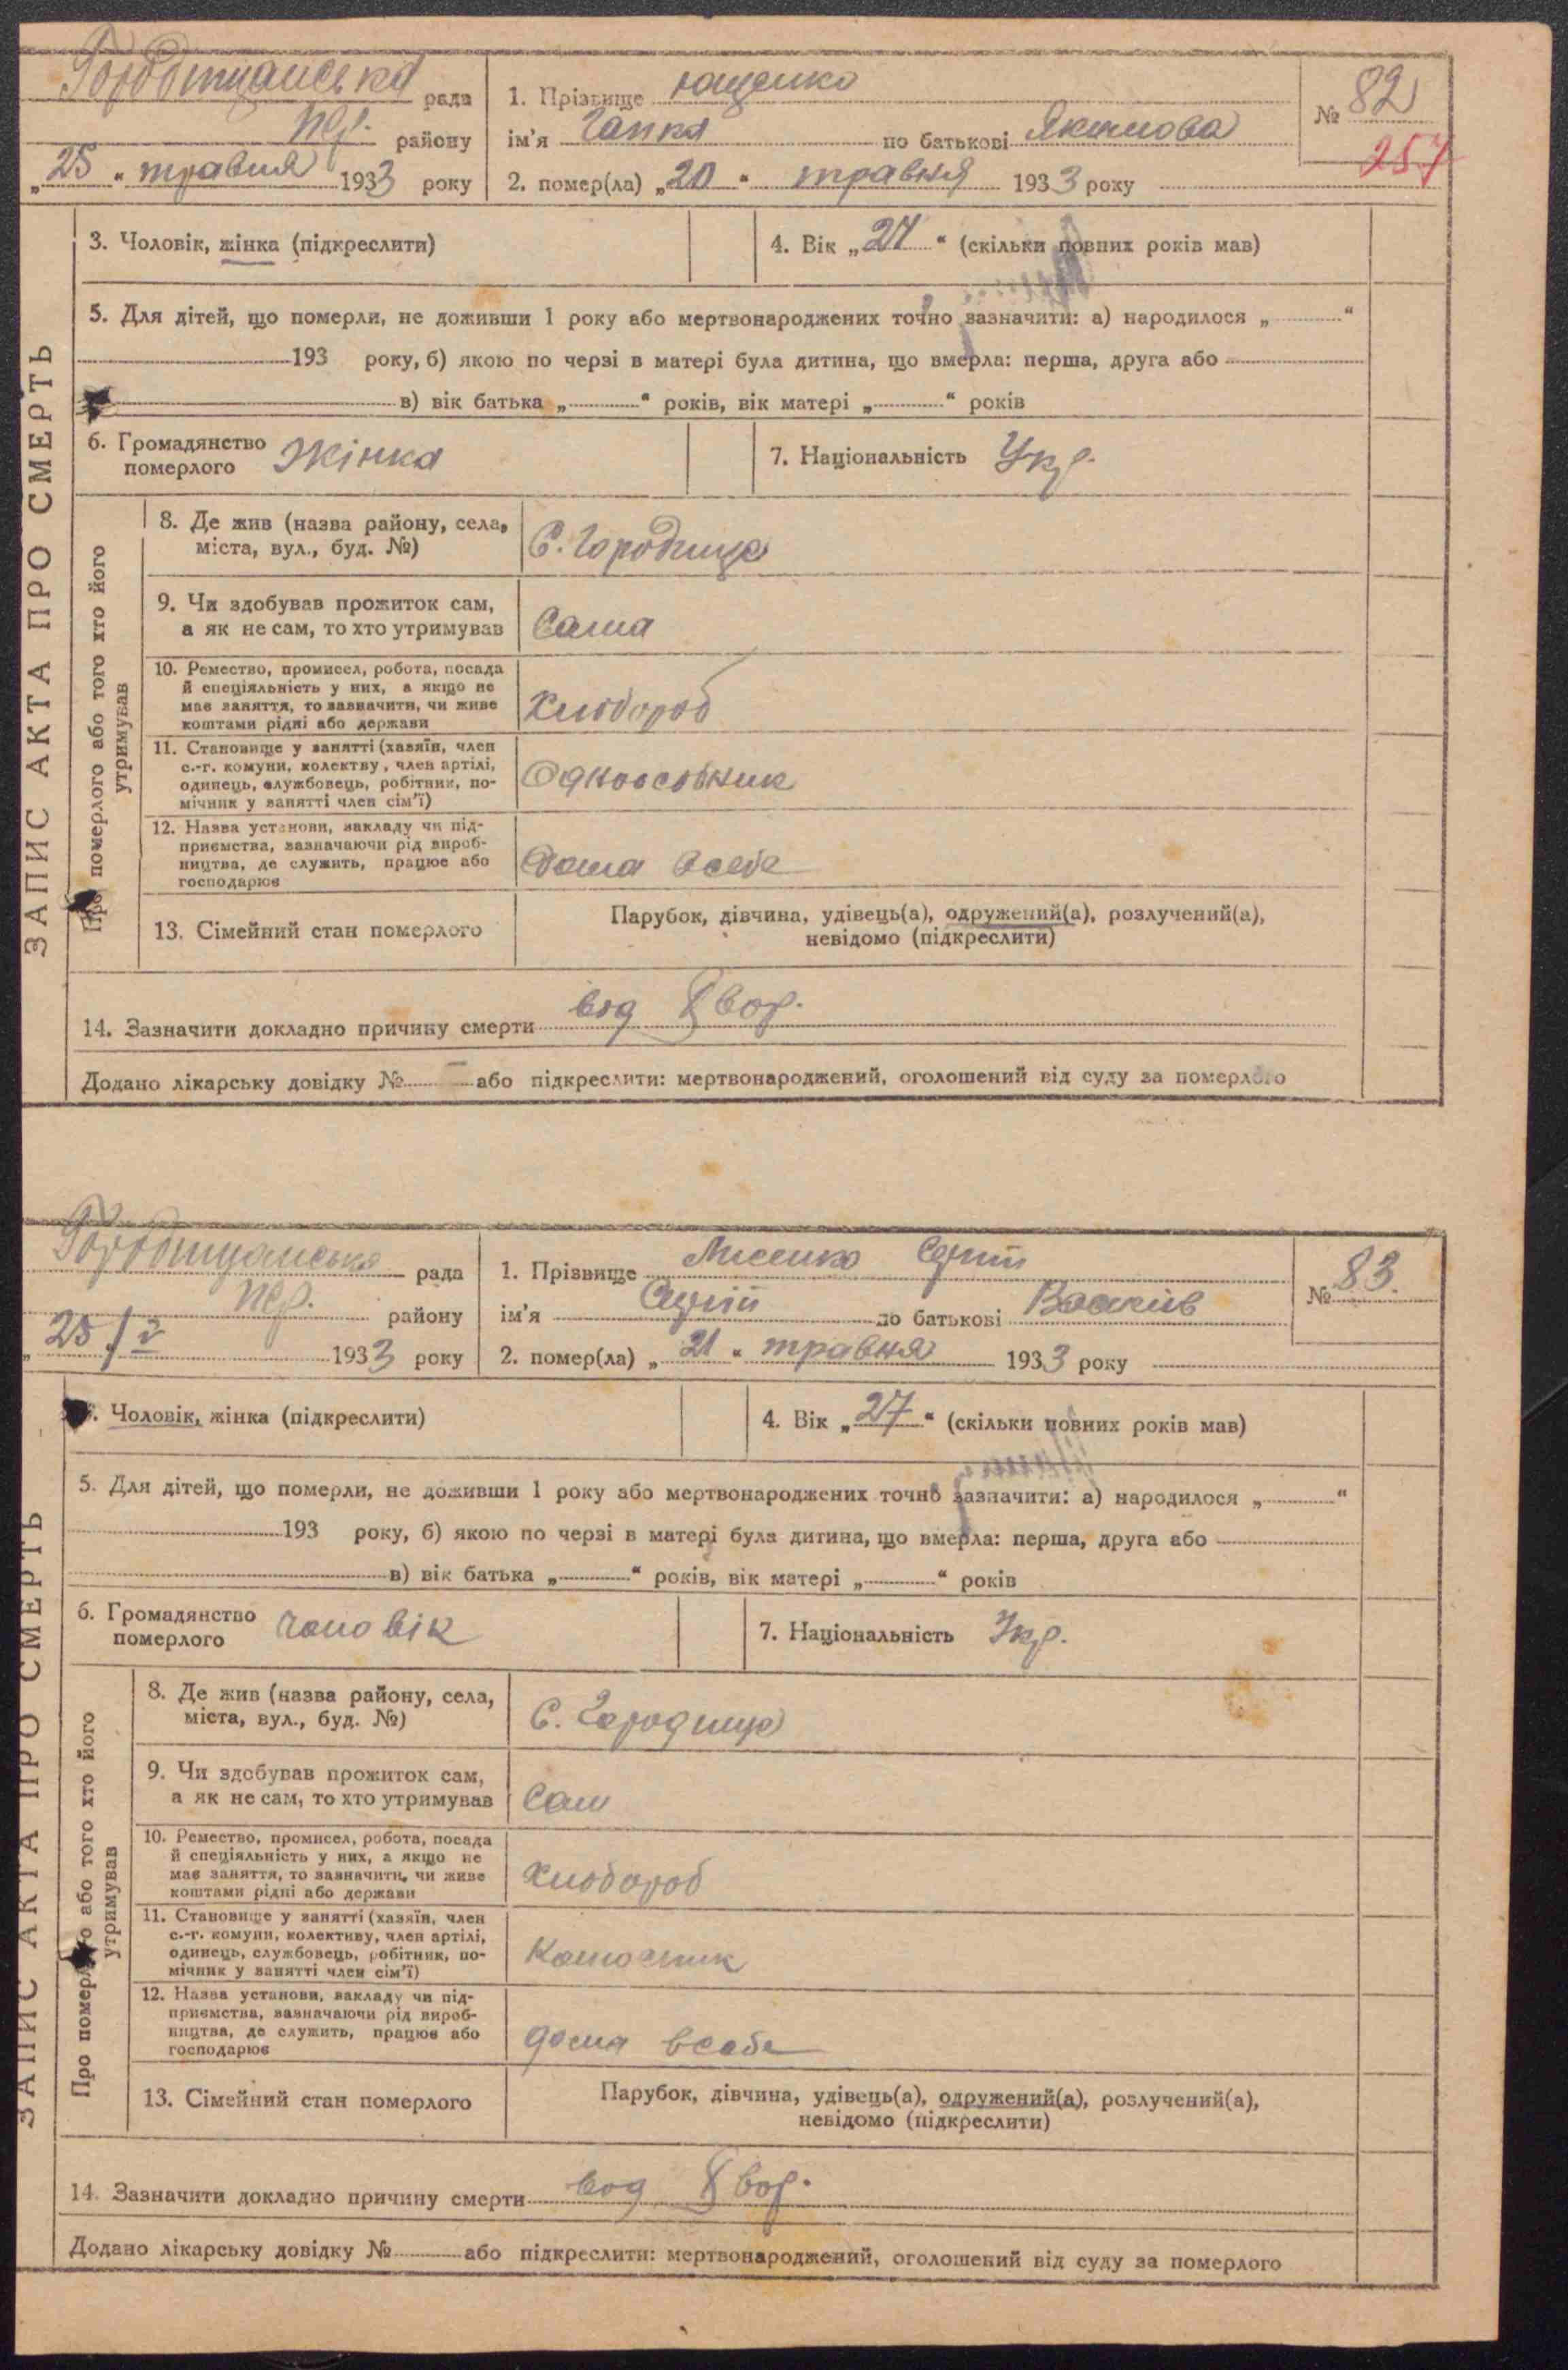 ЗАПИС АКТА ПРО СМЕРТЬ
Городищанська рада
Пер. району
„25“ травня 1933 року
1. Прізвище Ющенко
ім'я Гапка по батькові Якимова
2. помер(ла) „20“ травня 1933 року
№ 82
257
3. Чоловік, жінка (підкреслити)
4. Вік „27“ (скільки повних років мав)
5. Для дітей, що померли, не доживши 1 року або мертвонароджених точно зазначити: а) народилося „ “
193 року, б) якою по черзі в матері була дитина, що вмерла: перша, друга або
в) вік батька „ “ років, вік матері „ “ років
6. Громадянство
померлого Жінка
7. Національність Укр.
Про померлого або того хто його
утримував
8. Де жив (назва району, села,
міста, вул., буд. №)
С. Городище
9. Чи здобував прожиток сам,
а як не сам, то хто утримував
Сама
10. Ремество, промисел, робота, посада
й спеціяльність у них, а якщо не
має заняття, то зазначити, чи живе
коштами рідні або держави
Хлібороб
11. Становище у занятті (хазяїн, член
с.-г. комуни, колектву, член артілі,
одинець, службовець, робітник, по-
мічник у занятті член сім'ї)
Одноособник
12. Назва установи, закладу чи під-
приємства, зазначаючи рід вироб-
ництва, де служить, працює або
господарює
Дома всебе
13. Сімейний стан померлого
Парубок, дівчина, удівець(а), одружений(а), розлучений(а),
невідомо (підкреслити)
14. Зазначити докладно причину смерти вод
Додано лікарську довідку № — або підкреслити: мертвонароджений, оголошений від суду за померлого
ЗАПИС АКТА ПРО СМЕРТЬ
Городищанська рада
Пер. району
„25/V 1933 року
1. Прізвище Лисенко Сергій
ім'я Сергій по батькові Васкив
2. помер(ла) „21“ травня 1933 року
№ 83.
3. Чоловік, жінка (підкреслити)
4. Вік „27“ (скільки повних років мав)
5. Для дітей, що померли, не доживши 1 року або мертвонароджених точно зазначити: а) народилося „ “
193 року, б) якою по черзі в матері була дитина, що вмерла: перша, друга або
в) вік батька „ “ років, вік матері „ “ років
6. Громадянство
померлого Чоловік
7. Національність Укр.
Про померлого або того хто його
утримував
8. Де жив (назва району, села,
міста, вул., буд. №)
С. Городище
9. Чи здобував прожиток сам,
а як не сам, то хто утримував
Сам
10. Ремество, промисел, робота, посада
й спеціяльність у них, а якщо не
має заняття, то зазначити, чи живе
коштами рідні або держави
Хлібороб
11. Становище у занятті (хазяїн, член
с.-г. комуни, колективу, член артілі,
одинець, службовець, робітник, по-
мічник у занятті член сім'ї)
12. Назва установи, закладу чи під-
приємства, зазначаючи рід вироб-
ництва, де служить, працює або
господарює
дома всебе
13. Сімейний стан померлого
Парубок, дівчина, удівець(а), одружений(а), розлучений(а),
невідомо (підкреслити)
14. Зазначити докладно причину смерти вод
Додано лікарську довідку № або підкреслити: мертвонароджений, оголошений від суду за померлого